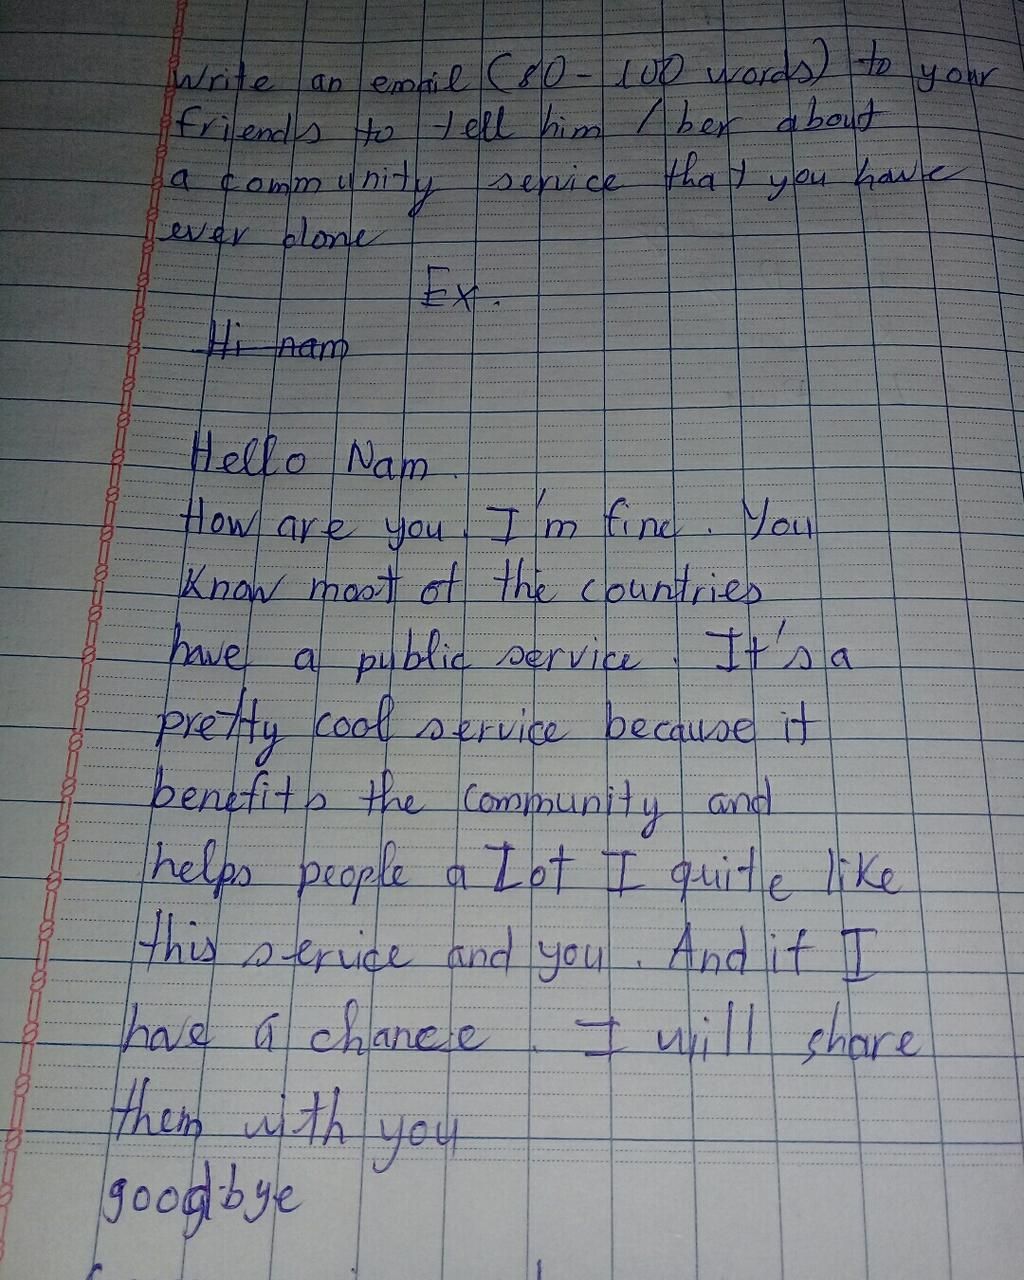 Write an email (80-100 words) to your
friends to tell him / her about
a community service that you have
ever done
Ex.
Hi nam
Hello Nam.
How are you. I'm fine. You
know most of the countries
have a public service. It's a
pretty cool service because it
benefits the community and
helps people a Lot I quite like
this service and you. And if I
have a chance. I will share
them with you
goodbye